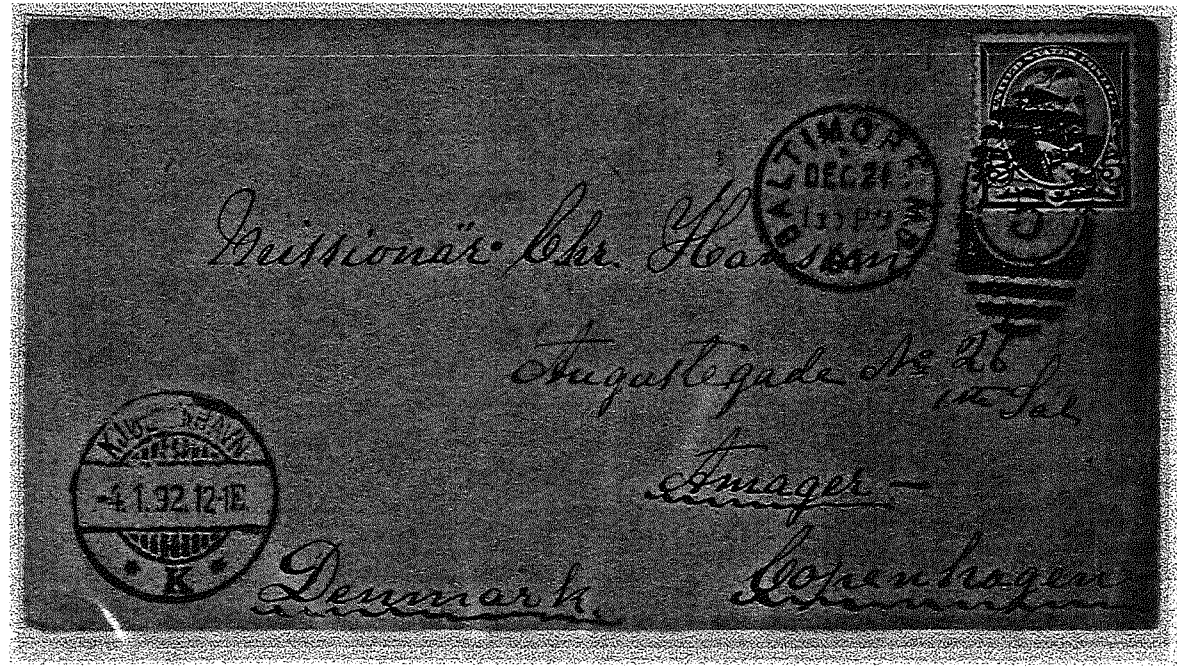 BALTIMORE, MD.
DEC 21
91
Missionär Chr. Hansen
Augustegade No 26
1ste Sal
Amager —
Copenhagen
Denmark.
-4.1.92.12-1E
K